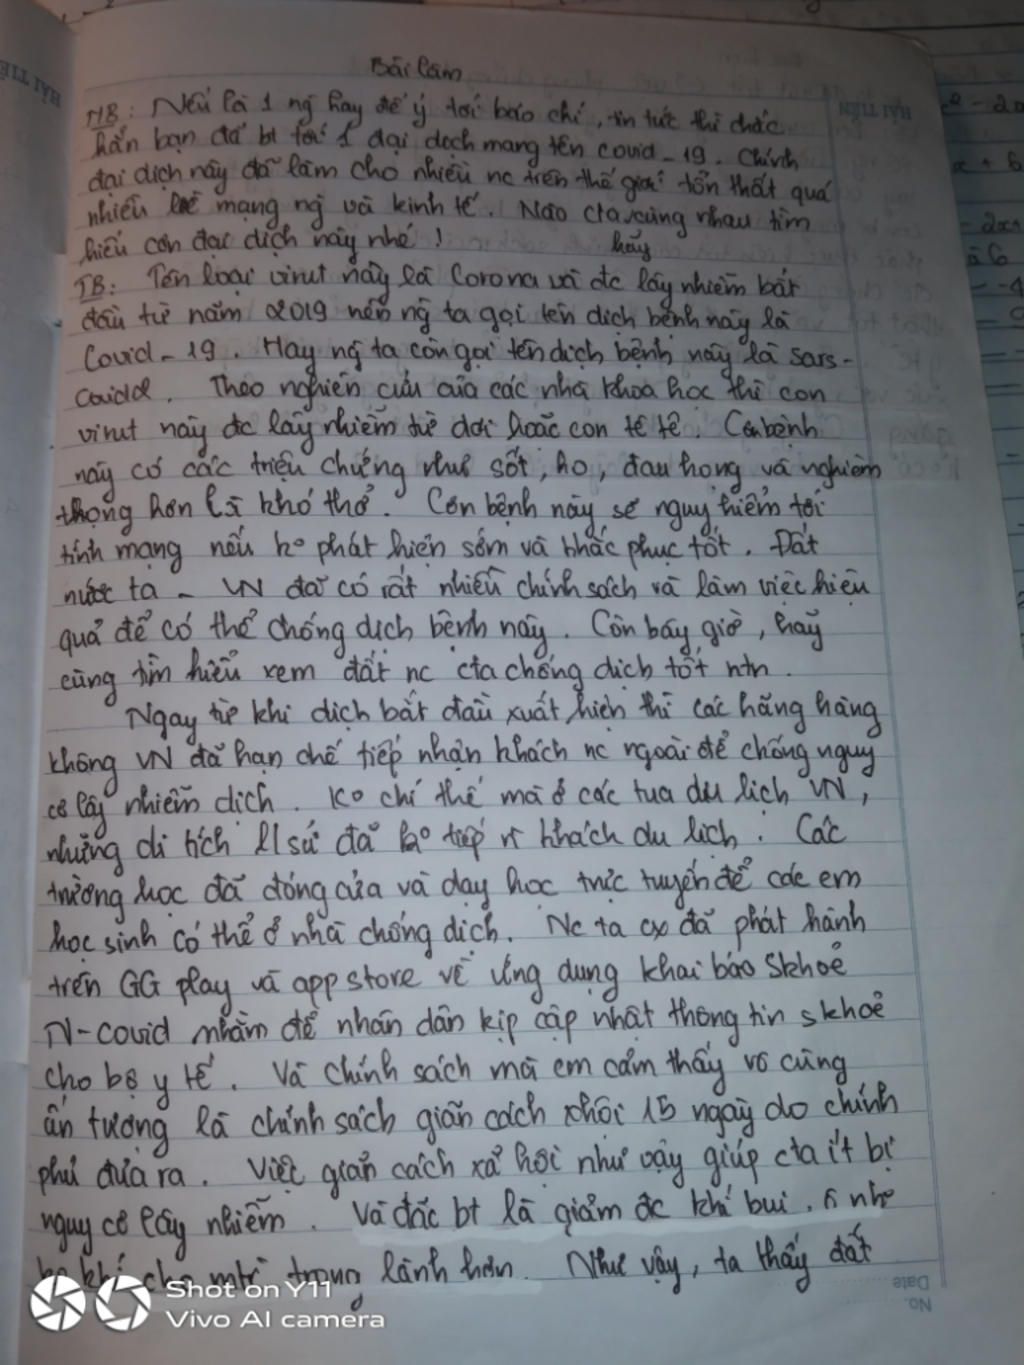 Bài làm
MB: Nếu là 1 ng hay để ý tới báo chí, tin tức thì chắc
hẳn bạn đã bt tới 1 đại dịch mang tên covid-19. Chính
đại dịch này đã làm cho nhiều nc trên thế giới tổn thất quá
nhiều mạng ng và kinh tế. Nào cta cùng nhau tìm
hãy
hiểu cơn đại dịch này nhé!
TB: Tên loại virut này là Corona và đc lây nhiễm bắt
đầu từ năm 2019 nên ng ta gọi tên dịch bệnh này là
Covid-19. Hay ng ta còn gọi tên dịch bệnh này là sars-
covid2. Theo nghiên cứu của các nhà khoa học thì con
virut này đc lây nhiễm từ dơi hoặc con tê tê. Cơn bệnh
này có các triệu chứng như sốt, ho, đau họng và nghiêm
trọng hơn là khó thở. Cơn bệnh này sẽ nguy hiểm tới
tính mạng nếu ko phát hiện sớm và khắc phục tốt. Đất
nước ta - VN đã có rất nhiều chính sách và làm việc hiệu
quả để có thể chống dịch bệnh này. Còn bây giờ, hãy
cùng tìm hiểu xem đất nc cta chống dịch tốt ntn.
Ngay từ khi dịch bắt đầu xuất hiện thì các hãng hàng
không VN đã hạn chế tiếp nhận khách nc ngoài để chống nguy
cơ lây nhiễm dịch. Ko chỉ thế mà ở các tua du lịch VN,
những di tích lsử đã ko tiếp khách du lịch. Các
trường học đã đóng cửa và dạy học trực tuyến để các em
học sinh có thể ở nhà chống dịch. Nc ta cx đã phát hành
trên GG play và app store về ứng dụng khai báo skhoẻ
N-covid nhằm để nhân dân kịp cập nhật thông tin skhoẻ
cho bộ y tế. Và chính sách mà em cảm thấy vô cùng
ấn tượng là chính sách giãn cách xhội 15 ngày do chính
phủ đưa ra. Việc giãn cách xã hội như vậy giúp cta ít bị
nguy cơ lây nhiễm. Và đặc bt là giảm đc khí bụi, nhờ
trong lành hơn. Như vậy, ta thấy đất
Shot on Y11
Vivo AI camera
HẢI TIẾN
HẢI TIẾN
No.
Date